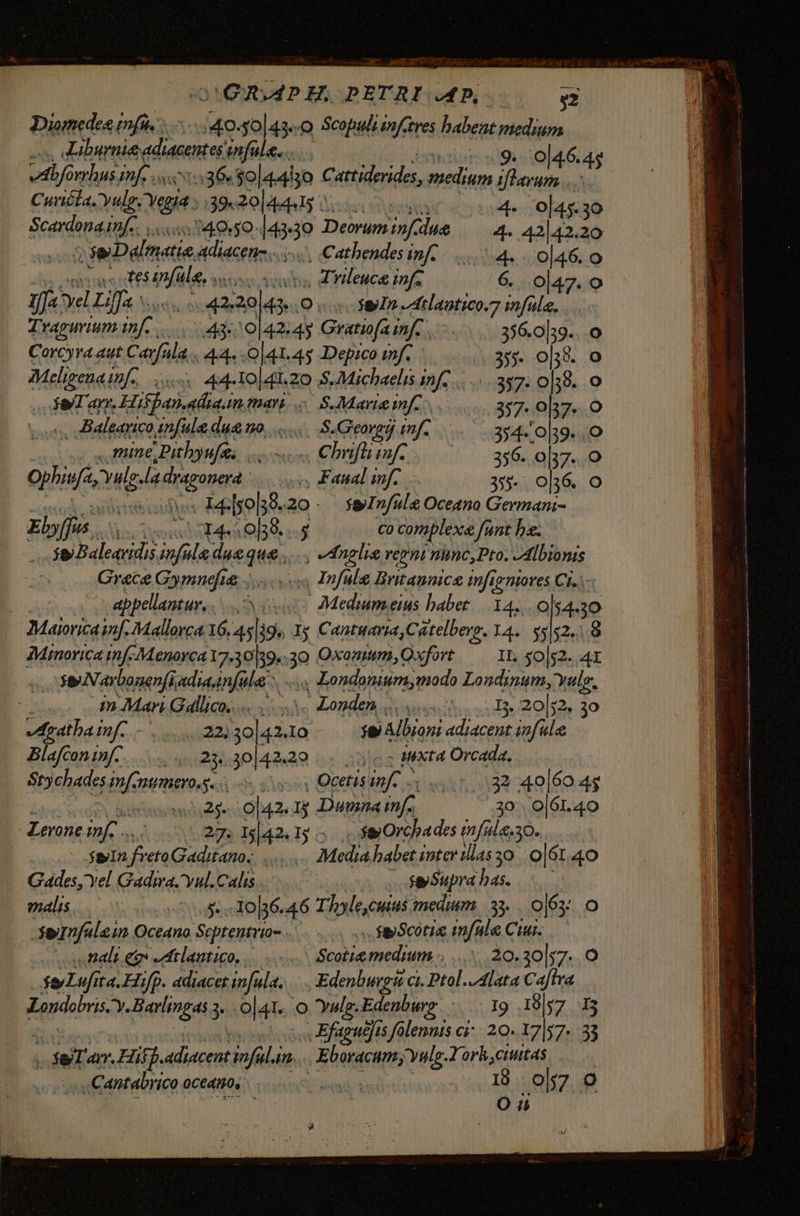 GRAPH. PETRI AP. 52
Diomedeę insu. 40.50|43.0
Liburnię adiacentes insulę.
Absorrhus inf. 36.50|44.30
Curicta. vulg. Vegia 39.20|44.15
Scardona inf. 40.50|43.30
Dalmatię adiacen-
tes insulę.
Issa vel Lissa 42.20|43.0
Tragurium inf. 43.0|42.45
Corcyra aut Carsula. 44.0|41.45
Meligena inf. 44.10|41.20
Tarr. Hispan. adia. in mari
Balearico insulę duę no
minę, Pithyusę.
Ophiusa, vulg. la dragonera
14.50|38.20
Ebyssus 14.0|38.5
Balearidis insulę duę quę
Gręcę Gymnesię
appellantur.
Maiorica inf. Mallorca 16.45|39.15
Minorica inf. Menorca 17.30|39.30
Narbonensi adia. insulę
in Mari Gallico.
Agatha inf. 22.30|42.10
Blascon inf. 23.30|42.20
Stychades inf. numero.5.
25.0|42.15
Lerone inf. 27.15|42.15
In freto Gaditano.
Gades, vel Gadira. vul. Calis
malis 5.10|36.46
Insulę in Oceano Septentrio-
nali & Atlantico.
Lusita. Hisp. adiacet insula.
Londobris. v. Barlingas 3.0|41.0
Tarr. Hisp. adiacent insul. in
Cantabrico oceano,
Scopuli inf. tres habent medium
9.0|46.45
Cattiderides, medium istarum
4.0|45.30
Deorum inf. duę 4.42|42.20
Cathendes inf. 4.0|46.0
Trileuca inf. 6.0|47.0
In Atlantico. 7 insulę.
Gratiosa inf. 356.0|39.0
Depico inf. 355.0|38.0
S. Michaelis inf. 357.0|38.0
S. Marię inf. 357.0|37.0
S. Georgij inf. 354.0|39.0
Christi inf. 356.0|37.0
Faual inf. 355.0|36.0
Insulę Oceano Germani-
co complexę sunt hę.
Anglię regni nunc, Pto. Albionis
Insulę Britannicę insigniores Ci.
Medium eius habet 14.0|54.30
Cantuaria, Catelberg. 14.55|52.8
Oxonium, Oxfort 11.50|52.41
Londonium, modo Londinum, vulg.
Londen 13.20|52.30
Albioni adiacent insulę
iuxta Orcada.
Ocetis inf. 32 40|60 45
Dumna inf. 30 0|61.40
Orchades insulę. 30.
Media habet inter illas 30 0|61 40
Supra has.
Thyle, cuius medium 33. 0|63: 0
Scotię insulę Ciui.
Scotię medium 20.30|57.0
Edenburgū ci. Ptol. Alata Castra
vulg. Edenburg 19 18|57 13
Efaguesis solennis ci: 20.17|57.33
Eboracum, vulg. York, ciuitas
18 0|57 0
O ii